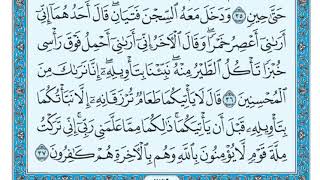 حَتَّىٰ حِينٍ ٣٥ وَدَخَلَ مَعَهُ ٱلسِّجْنَ فَتَيَانِ ۖ قَالَ أَحَدُهُمَآ إِنِّىٓ
أَرَىٰنِىٓ أَعْصِرُ خَمْرًا ۖ وَقَالَ ٱلْـَٔاخَرُ إِنِّىٓ أَرَىٰنِىٓ أَحْمِلُ فَوْقَ رَأْسِى
خُبْزًا تَأْكُلُ ٱلطَّيْرُ مِنْهُ ۖ نَبِّئْنَا بِتَأْوِيلِهِۦٓ ۖ إِنَّا نَرَىٰكَ مِنَ
ٱلْمُحْسِنِينَ ٣٦ قَالَ لَا يَأْتِيكُمَا طَعَامٌ تُرْزَقَانِهِۦٓ إِلَّا نَبَّأْتُكُمَا
بِتَأْوِيلِهِۦ قَبْلَ أَن يَأْتِيَكُمَا ۚ ذَٰلِكُمَا مِمَّا عَلَّمَنِى رَبِّىٓ ۚ إِنِّى تَرَكْتُ
مِلَّةَ قَوْمٍ لَّا يُؤْمِنُونَ بِٱللَّهِ وَهُم بِٱلْـَٔاخِرَةِ هُمْ كَـٰفِرُونَ ٣٧